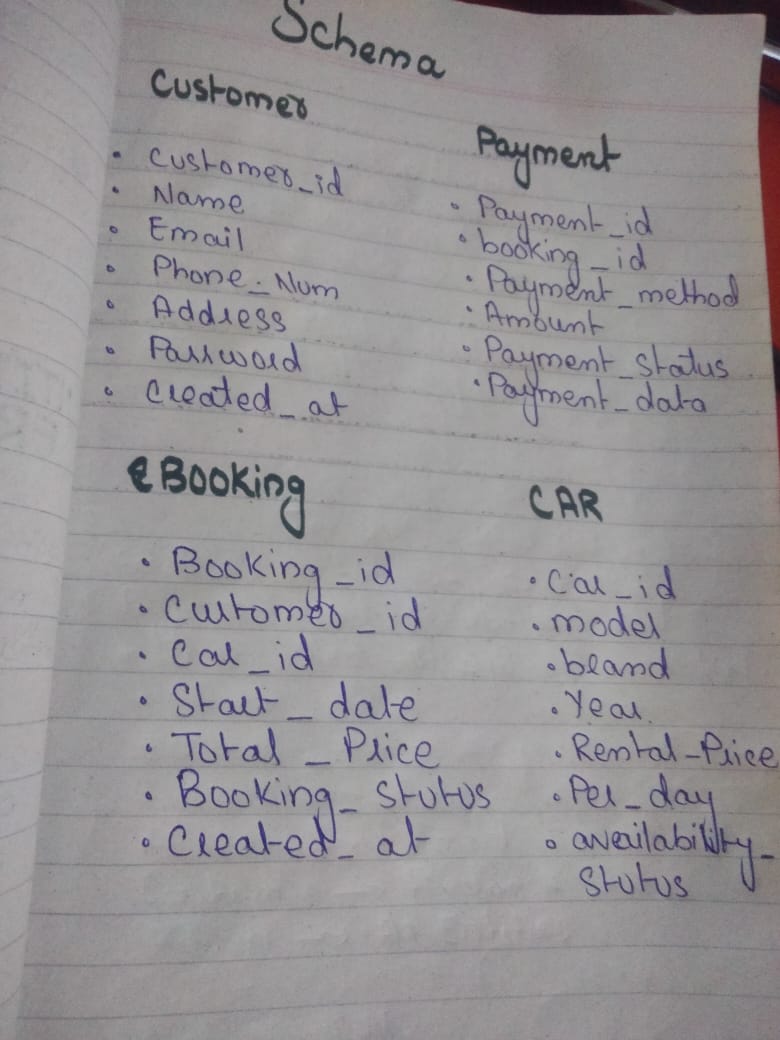 Schema
Customer
• Customer_id
• Name
• Email
• Phone_Num
• Address
• Password
• Created_at
Payment
• Payment_id
• booking_id
• Payment_method
• Amount
• Payment_status
• Payment_data
Booking
• Booking_id
• Customer_id
• Car_id
• Start_date
• Total_Price
• Booking_status
• Created_at
CAR
• Car_id
• model
• brand
• Year
• Rental_Price
• Per_day
• availability_
status